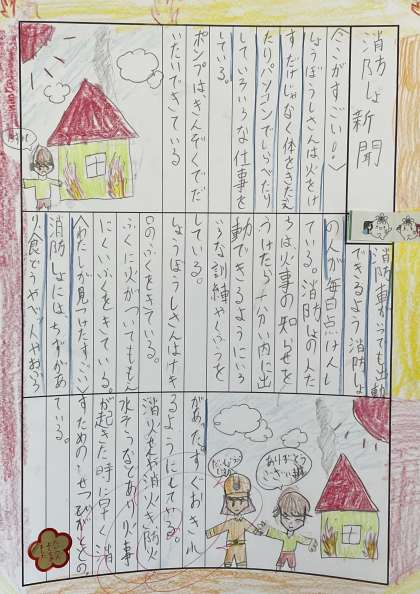 消防しょ新聞
〈ここがすごい!!〉
しょうぼうしさんは火をけ
すだけじゃなく体をきたえ
たりパソコンでしらべたり
していろいろな仕事を
している。
ポンプはきんぞくでだ
いたいできている
消防車がいつでも出動
できるよう消防しょ
の人が毎日点けんし
ている。消防しょの人た
ちは火事の知らせを
うけたら一分い内に出
動できるようにいろ
いろな訓練やくふうを
している。
しょうぼうしさんはけき
ふくに火がついてももえ
にくいふくをきている。
〈わたしが見つけたすごい〉
消防しょにはちずがあ
り食どうやべ
があた。すぐおきれ
るようにしている。
消火せんや消火き、防火
水そうなどあり火事
が起きた時に早く消
すための
ている。
だいじょうぶ
ありがとう
ございます